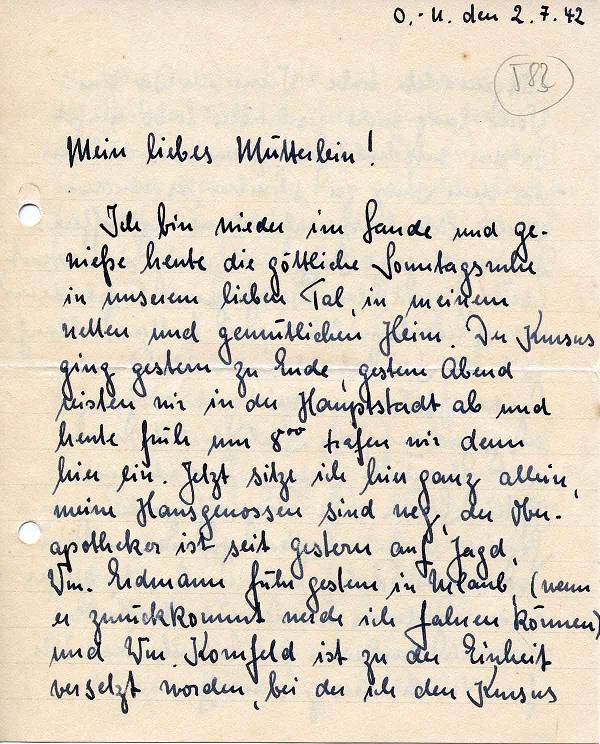 O.-U. den 2.7.42
T 82
Mein liebes Mütterlein!
Ich bin wieder im Lande und ge-
nieße heute die göttliche Sonntagsruhe
in unserem lieben Tal, in meinem
netten und gemütlichen Heim. Der Kursus
ging gestern zu Ende, gestern Abend
reisten wir in der Hauptstadt ab und
heute früh um 8⁰⁰ trafen wir dann
hier ein. Jetzt sitze ich hier ganz allein,
meine Hausgenossen sind weg, der Ober-
apotheker ist seit gestern auf Jagd,
Wm. Erdmann fuhr gestern in Urlaub, (wenn
er zurückkommt werde ich fahren können)
und Wm. Kornfeld ist zu der Einheit
versetzt worden, bei der ich den Kursus